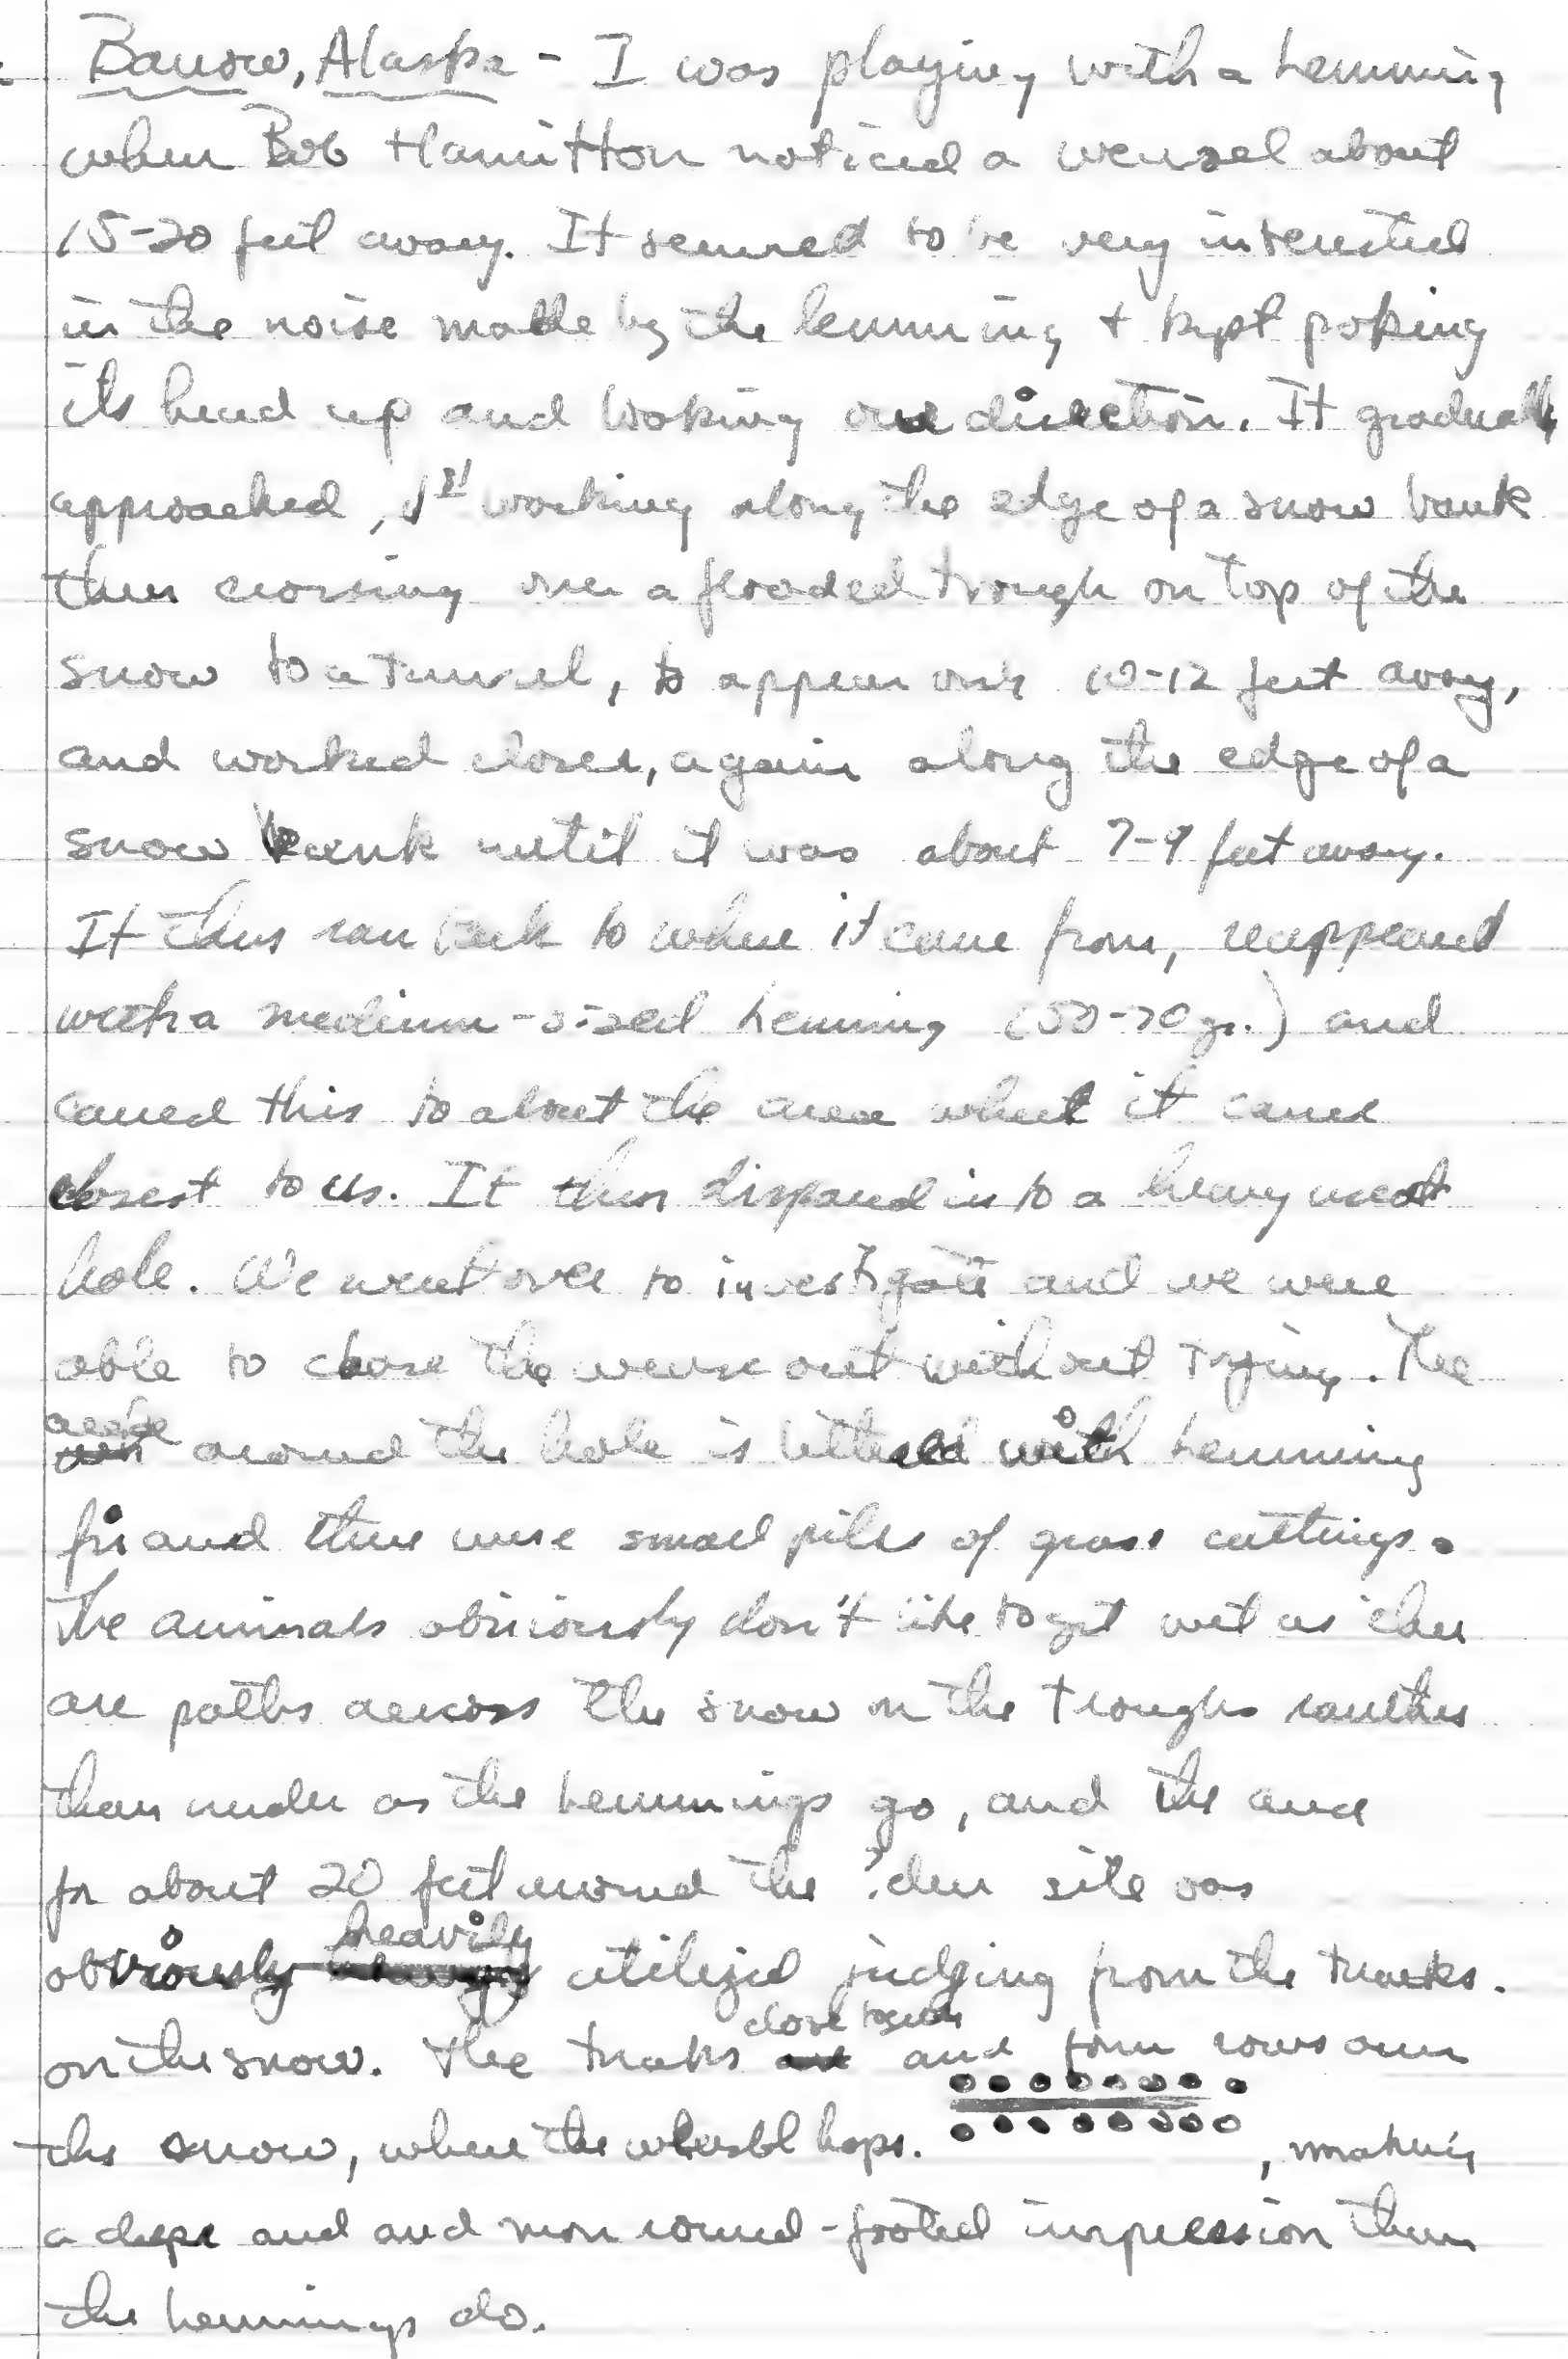 Barrow, Alaska - I was playing with a Lemming
when Bob Hamilton noticed a weasel about
15-20 feet away. It seemed to be very interested
in the noise made by the lemming + kept poking
its head up and looking our direction. It gradually
approached, 1st working along the edge of a snow bank
then crossing over a flooded trough on top of the
snow to a tunnel, to appear only 10-12 feet away,
and worked closer, again along the edge of a
snow bank until it was about 7-9 feet away.
It then ran back to where it came from, reappeared
with a medium-sized Lemming (50-70 gr.) and
carried this to about the area where it came
closest to us. It then disappeared into a heavy used
hole. We went over to investigate and we were
able to chase the weasel out without trying. The
area around the hole is littered with Lemming
fur and there were small piles of grass cuttings.
The animals obviously don't like to get wet as there
are paths across the snow on the troughs rather
than under as the Lemmings go, and the area
for about 20 feet around the ? den site was
obviously heavily utilized judging from the tracks.
on the snow. The tracks close together and form rows over
the snow, where the weasel hops. , making
a deeper and and more round-footed impression than
the Lemmings do.